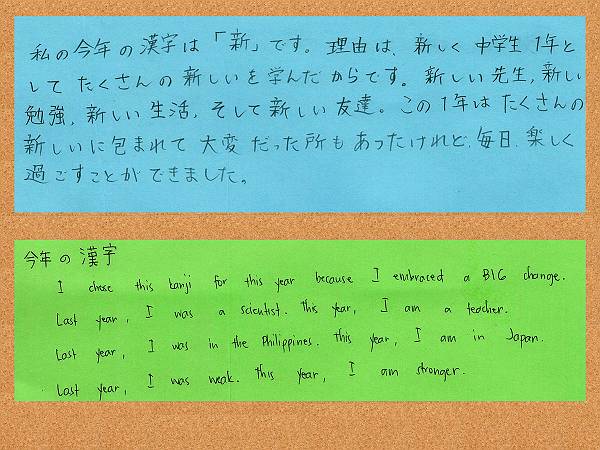 私の今年の漢字は「新」です。理由は、新しく中学生1年と
してたくさんの新しいを学んだからです。新しい先生,新しい
勉強,新しい生活,そして新しい友達。この1年はたくさんの
新しいに包まれて大変だった所もあったけれど、毎日、楽しく
過ごすことができました。
今年の漢字
I chose this kanji for this year because I embraced a BIG change.
Last year, I was a scientist. This year, I am a teacher.
Last year, I was in the Philippines. This year, I am in Japan.
Last year, I was weak. This year, I am stronger.